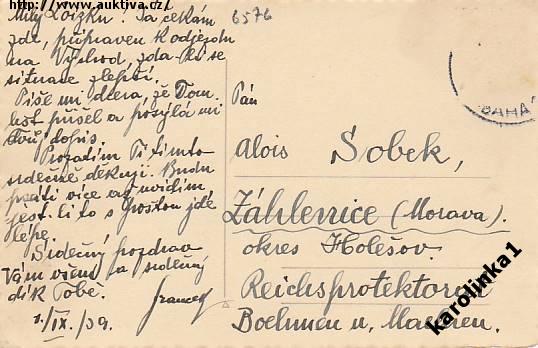 http://www.auktiva.cz/
Milý Lojzku! Já čekám
zde, připraven k odjezdu
na Východ, zda ku se
situace zlepší.
Píše mi dcera, že Tom.
list přišel a posýlá mi
Tvůj dopis.
Prozatím Ti tímto
srdečně děkuji. Budu
psáti více až uvidím
jest-li to s poštou jde
lépe.
Srdečný pozdrav
Vám všem a srdečný
dík Tobě.
1./IX./39.
6576
BAHA
Pán
Alois Sobek,
Záhlenice (Morava).
okres Holešov.
Reichsprotektorat
Boehmen u. Maehren.
karolinka1